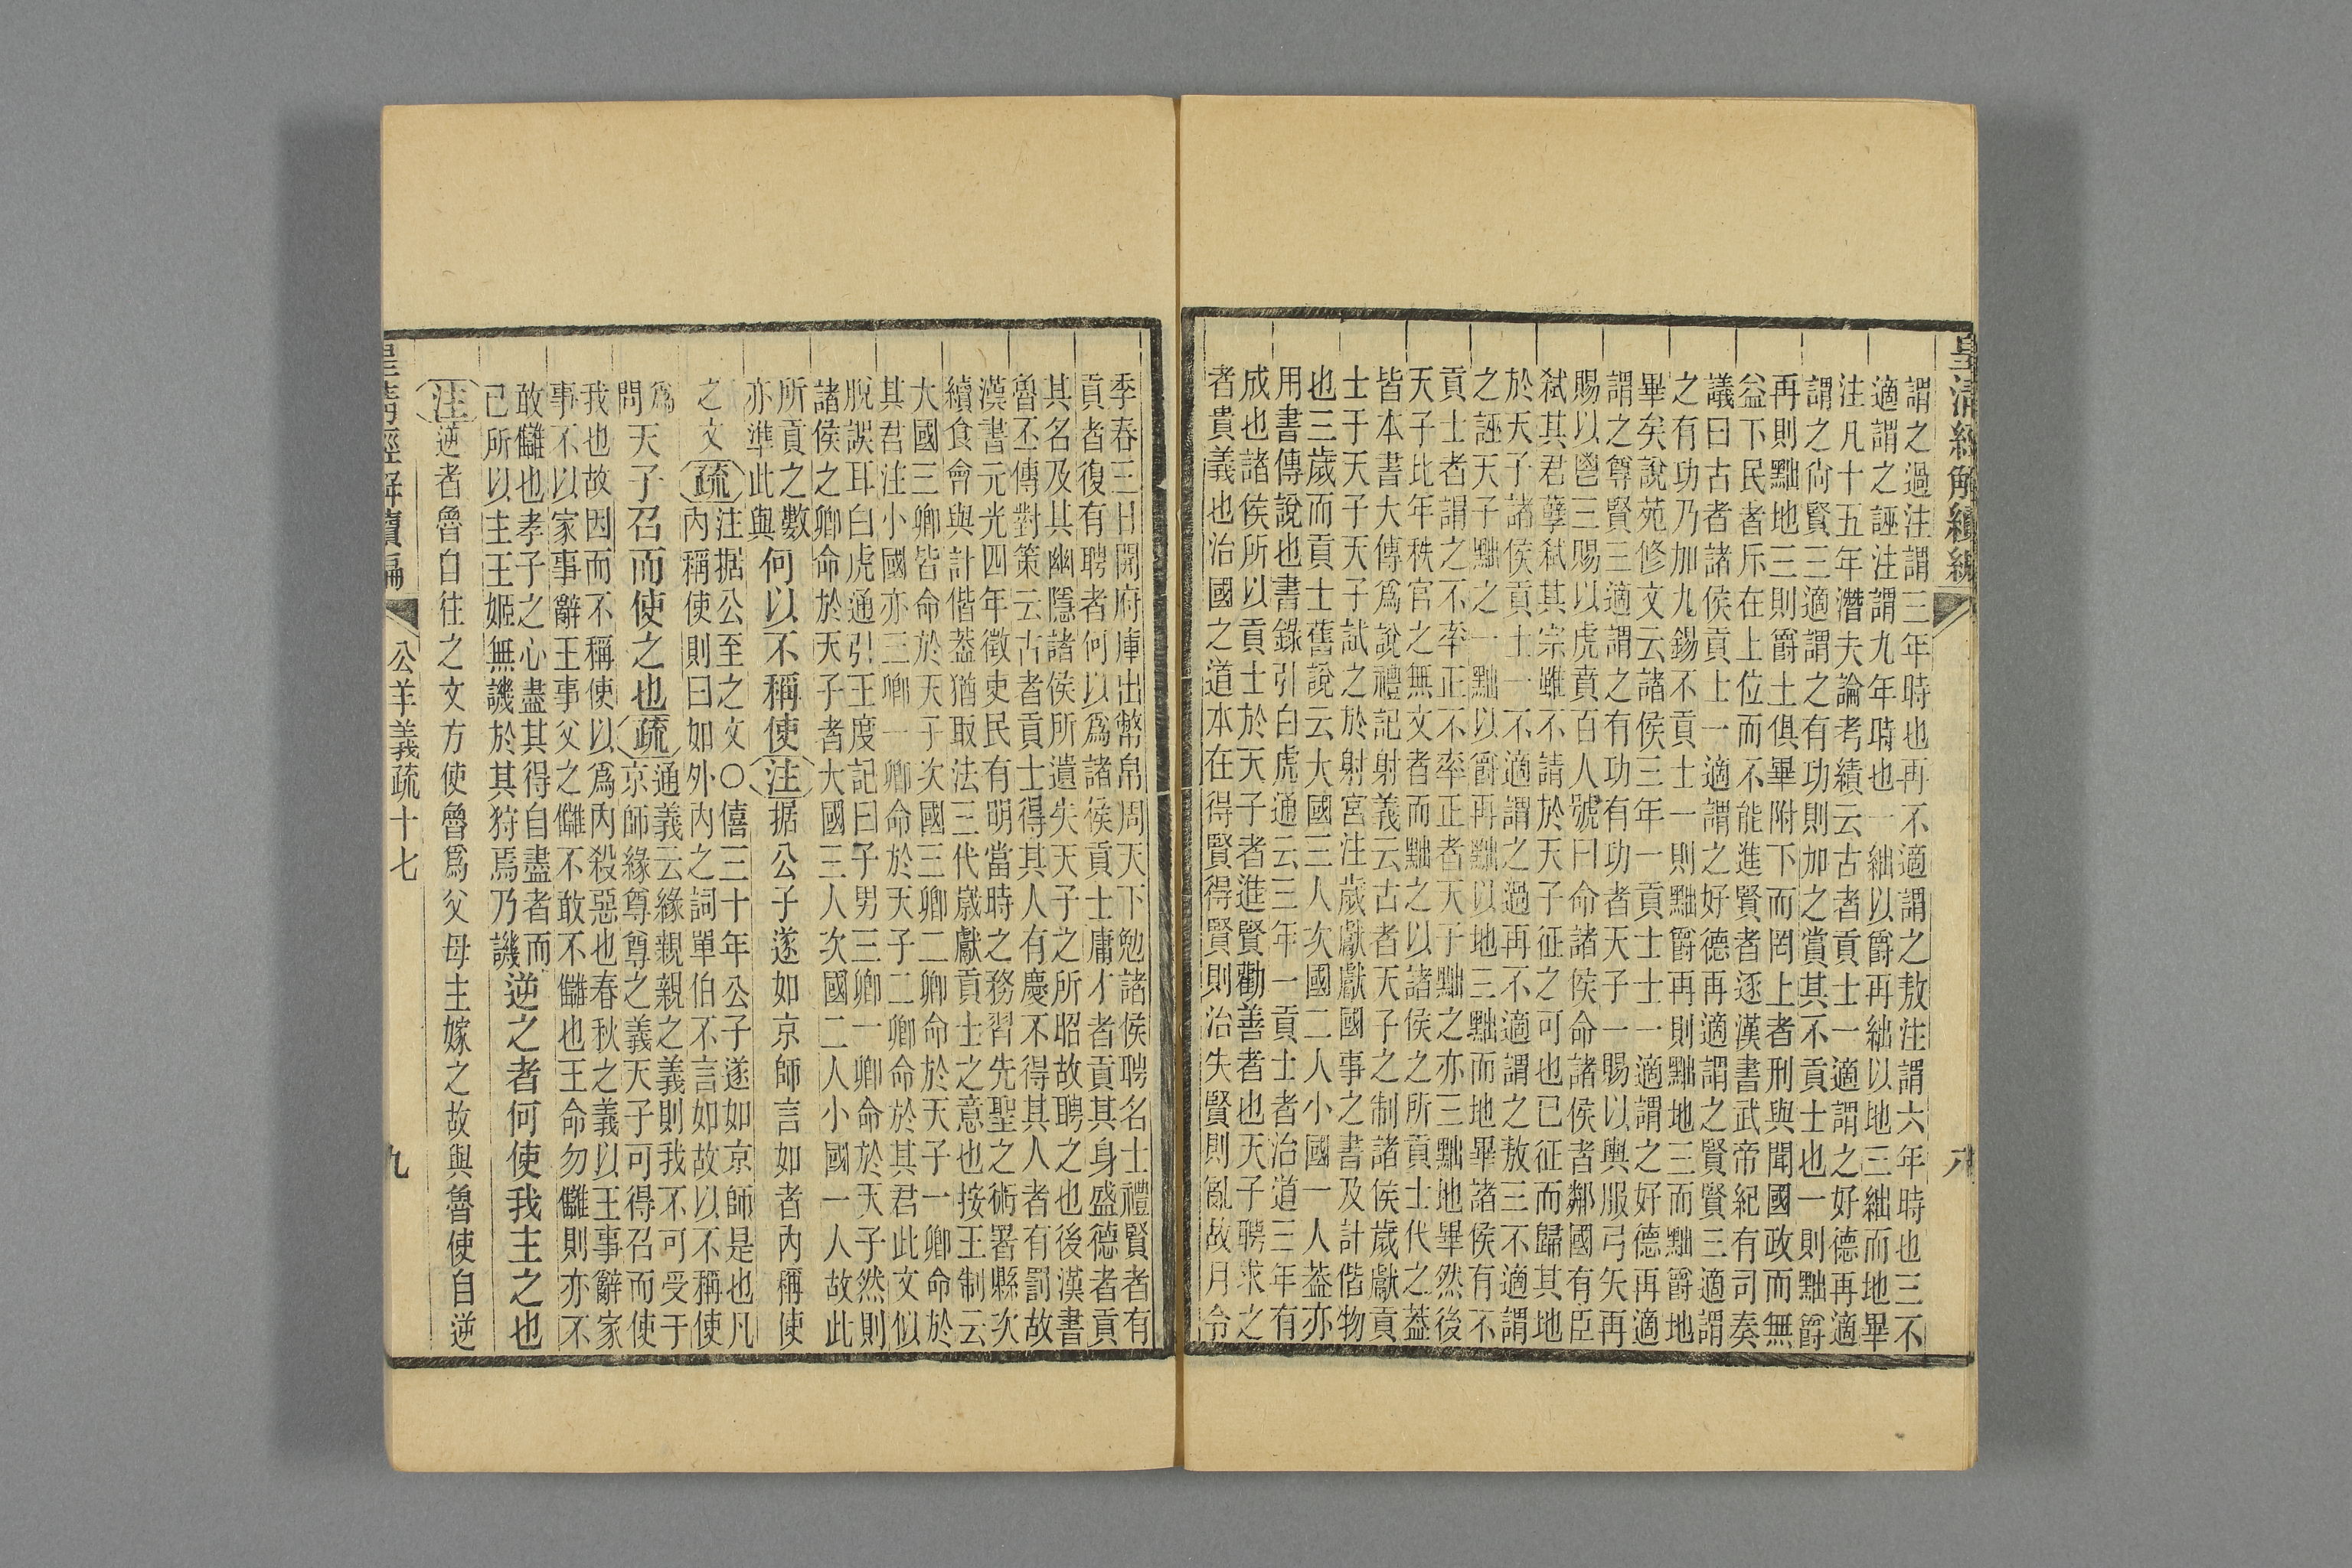 皇清經解續編
八
謂之過注謂三年時也再不適謂之敖注謂六年時也三不
適謂之誣注謂九年時也一絀以爵再絀以地三絀而地畢
注凡十五年潛夫論考績云古者貢士一適謂之好德再適
謂之尙賢三適謂之有功則加之賞其不貢士也一則黜爵
再則黜地三則爵土俱畢附下而罔上者刑與聞國政而無
益下民者斥在上位而不能進賢者逐漢書武帝紀有司奏
議曰古者諸侯貢士一適謂之好德再適謂之賢賢三適謂
之有功乃加九錫不貢士一則黜爵再則黜地三而黜爵地
畢矣說苑修文云諸侯三年一貢士士一適謂之好德再適
謂之尊賢三適謂之有功有功者天子一賜以輿服弓矢再
賜以鬯三賜以虎賁百人號曰命諸侯命諸侯者鄰國有臣
弑其君孽弑其宗雖不請於天子征之可也已征而歸其地
於天子諸侯貢士一不適謂之過再不適謂之敖三不適謂
之誣天子黜之一黜以爵再黜以地三黜而地畢諸侯有不
貢士者謂之不率正不率正者天子黜之亦三黜地畢然後
天子比年秩官之無文者而黜之以諸侯之所貢士代之葢
皆本書大傳爲說禮記射義云古者天子之制諸侯歲獻貢
士于天子天子試之於射宮注歲獻獻國事之書及計偕物
也三歲而貢士舊說云大國三人次國二人小國一人葢亦
用書傳說也書錄引白虎通云三年一貢士者治道三年有
成也諸侯所以貢士於天子者進賢勸善者也天子聘求之
者貴義也治國之道本在得賢得賢則治失賢則亂故月令
季春三日開府庫出幣帛周天下勉諸侯聘名士禮賢者有
貢者復有聘者何以爲諸侯貢士庸才者貢其身盛德者貢
其名及其幽隱諸侯所遺失天子之所昭故聘之也後漢書
魯丕傳對策云古者貢士得其人有慶不得其人者有罰故
漢書元光四年徵吏民有明當時之務習先聖之術署縣次
續食會與計偕葢猶取法三代歲獻貢士之意也按王制云
大國三卿皆命於天子次國三卿二卿命於天子一卿命於
其君注小國亦三卿一卿命於天子二卿命於其君此文似
脫誤耳白虎通引王度記曰子男三卿一卿命於天子然則
諸侯之卿命於天子者大國三人次國二人小國一人故此
所貢之數
亦準此與
何以不稱使注据公子遂如京師言如者內稱使
之文疏
注据公至之文○僖三十年公子遂如京師是也凡
內稱使則曰如外內之詞單伯不言如故以不稱使
爲
問
天子召而使之也疏
通義云緣親親之義則我不可受于
京師緣尊尊之義天子可得召而使
我也故因而不稱使以爲內殺惡也春秋之義以王事辭家
事不以家事辭王事父之讎不敢不讎也王命勿讎則亦不
敢讎也孝子之心盡其得自盡者而
已所以主王姬無譏於其狩焉乃譏
逆之者何使我主之也
注逆者魯自往之文方使魯爲父母主嫁之故與魯使自逆
皇清經解續編
公羊義疏十七
九